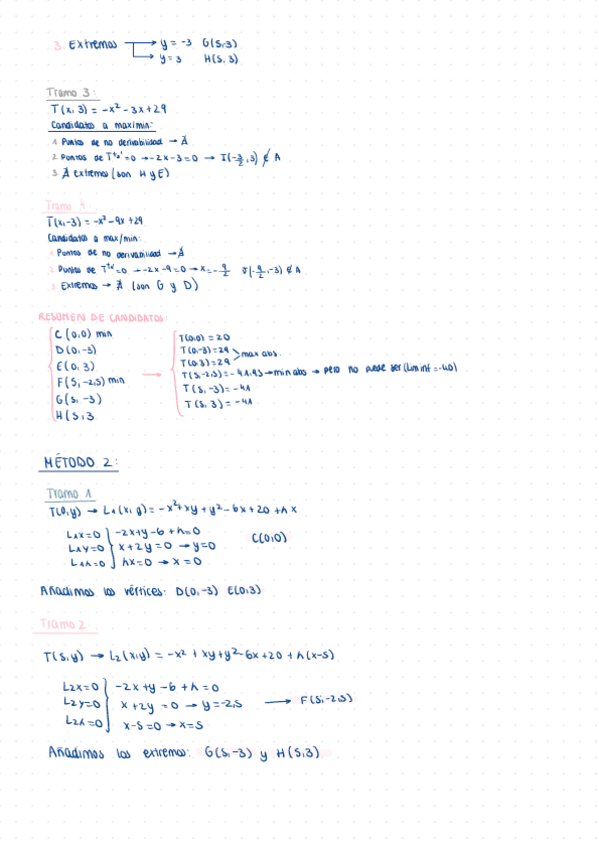 3. Extremos → y = -3 G(5,-3)
→ y = 3 H(5, 3)
Tramo 3:
T(x, 3) = -x² - 3x + 29
Candidatos a max/min:
1. Puntos de no derivabilidad → ∄
2. Puntos de =0 → -2x-3=0 → I(-3/2, 3) ∉ A
3. ∄ extremos (son H y E)
Tramo 4
T(x,-3) = -x² - 9x + 29
Candidatos a max/min:
1. Puntos de no derivabilidad → ∄
2. Puntos de =0 → -2x-9=0 → x = -9/2 J(-9/2, -3) ∉ A
3. Extremos → ∄ (son G y D)
RESUMEN DE CANDIDATOS:
C (0,0) min
D (0,-3)
E (0, 3)
F (5, -2,5) min
G (5, -3)
H (5, 3
→
T(0,0) = 20
T(0,-3) = 29
T(0,3) = 29 > max abs.
T(5,-2,5) = -41.25 → min abs → pero no puede ser (lim inf = -40)
T(5, -3) = -41
T(5, 3) = -41
MÉTODO 2:
Tramo 1
T(0,y) → L1(x, y) = -x² + xy + y² - 6x + 20 + λx
L1x=0 } -2x+y-6+λ=0
L1y=0 } x+2y=0 → y=0 C(0,0)
L1λ=0 } λx=0 → x=0
Añadimos los vértices: D(0,-3) E(0,3)
Tramo 2:
T(5,y) → L2(x,y) = -x² + xy + y² - 6x + 20 + λ(x-5)
L2x=0 } -2x+y-6+λ=0
L2y=0 } x+2y=0 → y=-2,5 → F(5,-2,5)
L2λ=0 } x-5=0 → x=5
Añadimos los extremos: G(5,-3) y H(5,3)